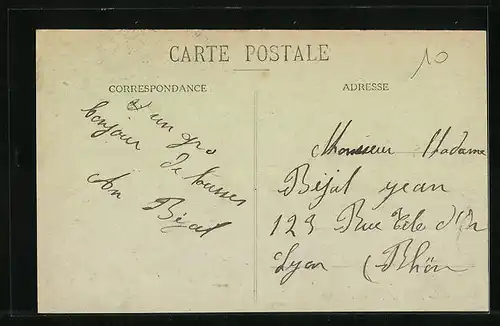 CARTE POSTALE
10
CORRESPONDANCE
& un gro
bonjour de tousses
An Béjal
ADRESSE
Monsieur Madame
Béjal Jean
123 Rue Tete d'Or
Lyon (Rhône